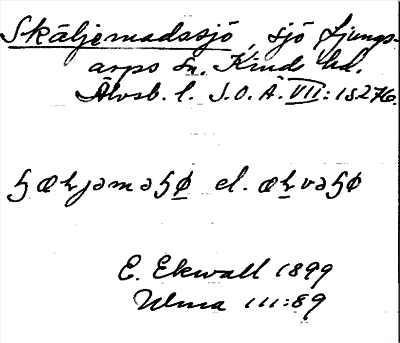 Skäljemadasjö, sjö Ljungs-
arps sn. Kinds hd.
Älvsb. l. S.O.Ä. VII: 18276.
ɧæɽjəməɧø el. æɽvəɧø
E. Ekwall 1899
Ulma 111:89